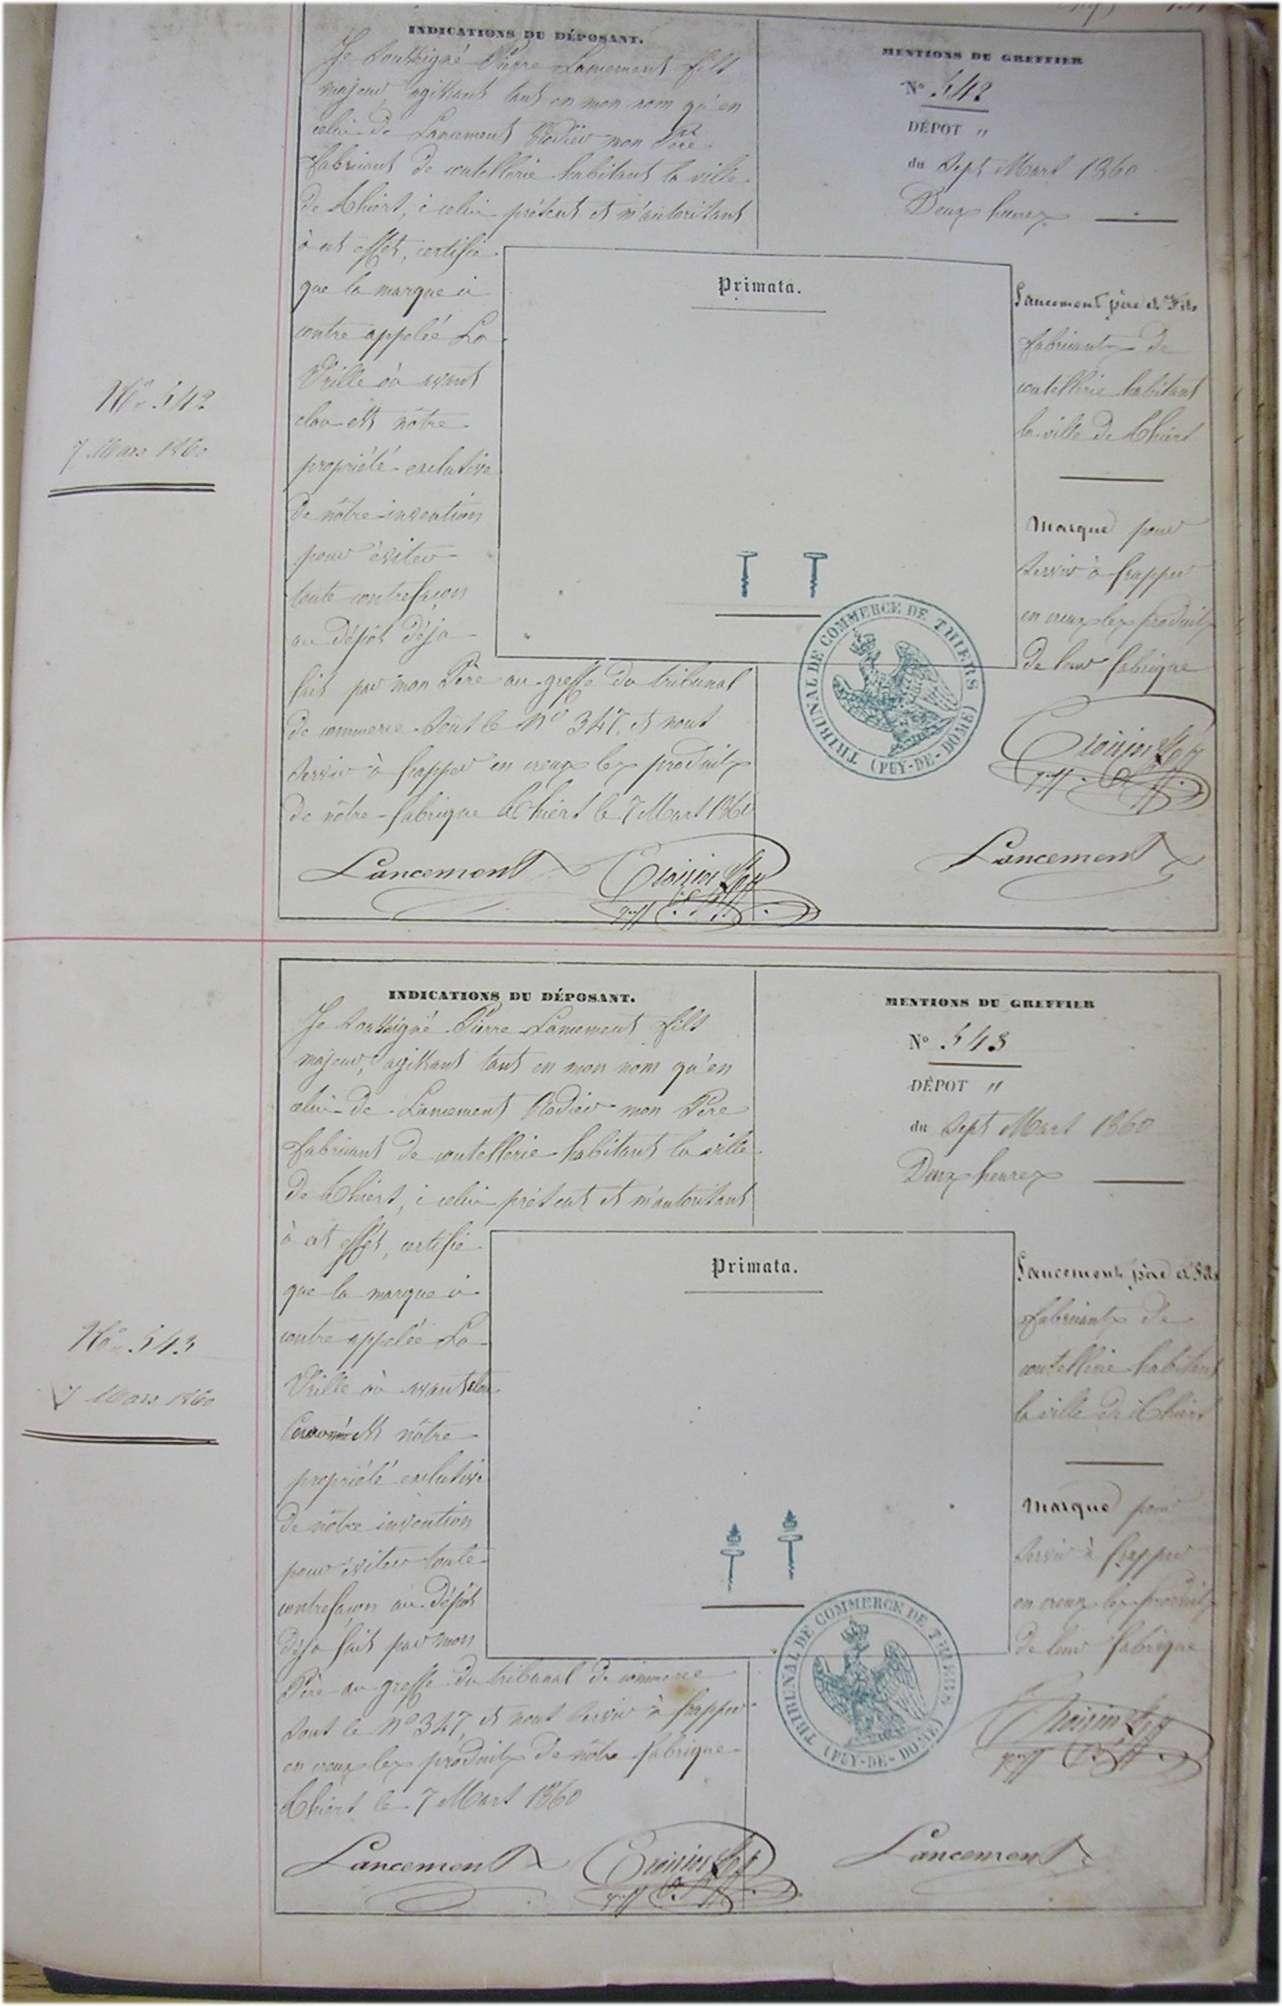 INDICATIONS DU DÉPOSANT.
Je soussigné Pierre Lancement fils
majeur, agissant tant en mon nom qu'en
celui de Lancement Rodier mon Père
fabricant de coutellerie habitant la ville
de Thiers, i celui présent et m'autorisant
à cet effet, certifie
que la marque ci
contre appelée La
Vrille ou avant
clou est nôtre
propriété exclusive
de nôtre invention
pour éviter
toute contrefaçon
au dépôt déja
fait par mon Père au greffe du tribunal
de commerce sous le N° 347, et nous
servir à frapper en creux les produits
de nôtre fabrique Thiers le 7 Mars 1860
Lancement
MENTIONS DU GREFFIER
N° 542
DÉPOT "
du Sept Mars 1860
Deux heures
Primata.
Lancement père et Fils
fabricants de
coutellerie habitant
la ville de Thiers
Marque pour
servir à frapper
en creux les produits
de leur fabrique
TRIBUNAL DE COMMERCE DE THIERS
(PUY-DE-DOME)
Lancement
N° 542
7 Mars 1860
INDICATIONS DU DÉPOSANT.
Je soussigné Pierre Lancement fils
majeur, agissant tant en mon nom qu'en
celui de Lancement Rodier mon Père
fabricant de coutellerie habitant la ville
de Thiers, i celui présent et m'autorisant
à cet effet, certifie
que la marque ci
contre appelée La
Vrille ou avant clou
Couronné est nôtre
propriété exclusive
de nôtre invention
pour éviter toute
contrefaçon au dépôt
déja fait par mon
Père au greffe du tribunal de commerce
sous le N° 347, et nous servir à frapper
en creux les produits de nôtre fabrique
Thiers le 7 Mars 1860
Lancement
MENTIONS DU GREFFIER
N° 543
DÉPOT "
du Sept Mars 1860
Deux heures
Primata.
Lancement père et Fils
fabricants de
coutellerie habitant
la ville de Thiers
Marque pour
servir à frapper
en creux les produits
de leur fabrique
TRIBUNAL DE COMMERCE DE THIERS
(PUY-DE-DOME)
Lancement
N° 543
7 Mars 1860